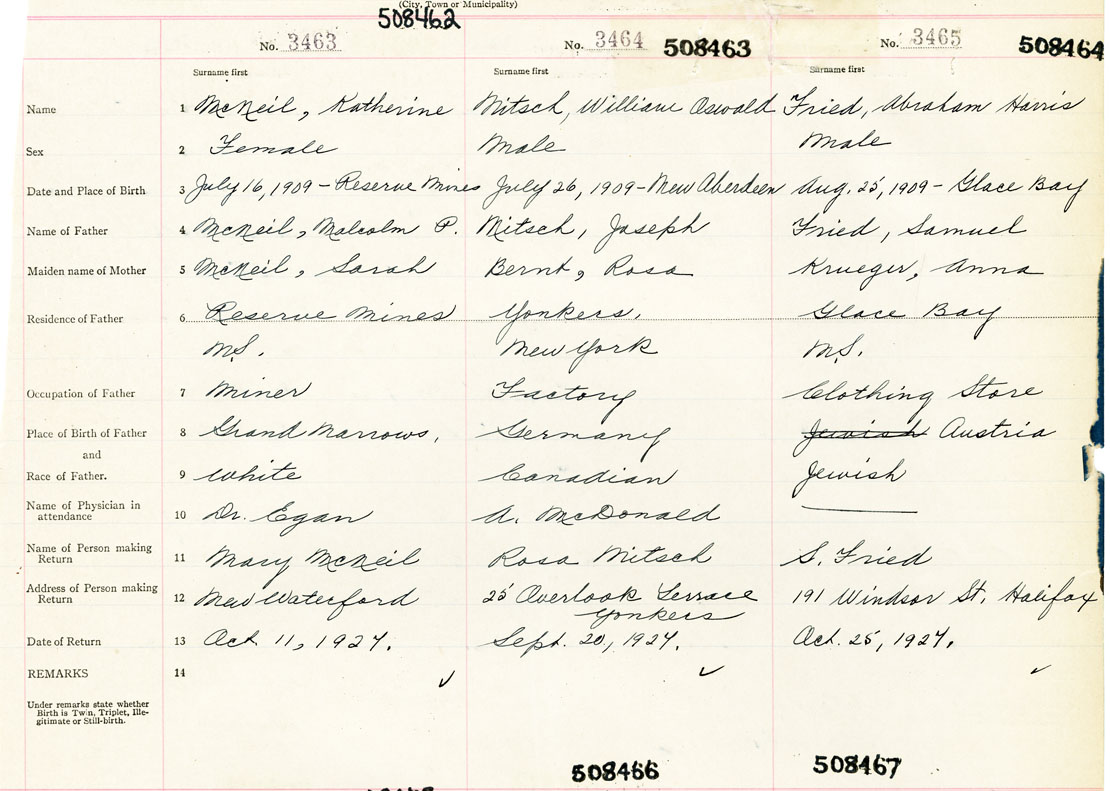 (City, Town or Municipality)
508462
No. 3463 No. 3464 508463 No. 3465 508464
Surname first Surname first Surname first
Name 1 McNeil, Katherine Nitsch, William Oswald Fried, Abraham Harris
Sex 2 Female Male Male
Date and Place of Birth 3 July 16, 1909 - Reserve Mines July 26, 1909 - New Aberdeen Aug. 25, 1909 - Glace Bay
Name of Father 4 McNeil, Malcolm P. Nitsch, Joseph Fried, Samuel
Maiden name of Mother 5 McNeil, Sarah Bernt, Rosa Krueger, Anna
Residence of Father 6 Reserve Mines Yonkers, Glace Bay
N.S. New York N.S.
Occupation of Father 7 Miner Factory Clothing Store
Place of Birth of Father 8 Grand Narrows, Germany Jewish Austria
and
Race of Father. 9 White Canadian Jewish
Name of Physician in
attendance 10 Dr. Egan A. McDonald
Name of Person making
Return 11 Mary McNeil Rosa Nitsch S. Fried
Address of Person making
Return 12 New Waterford 25 Overlook Terrace 191 Windsor St. Halifax
Yonkers
Date of Return 13 Oct. 11, 1927. Sept. 20, 1927. Oct. 25, 1927.
REMARKS 14
Under remarks state whether
Birth is Twin, Triplet, Ille-
gitimate or Still-birth.
508466 508467